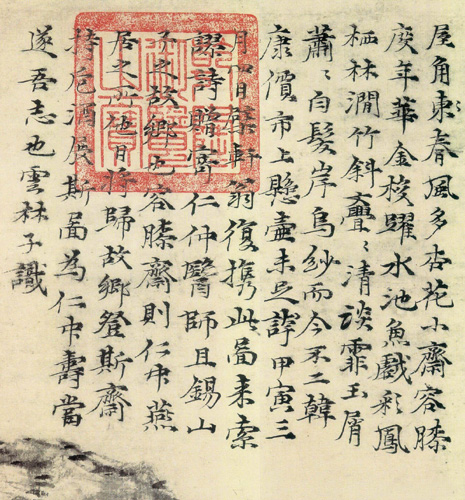 屋角東春風多杏花小齋容膝
度年華金梭躍水池魚戲彩鳳
栖林澗竹斜亹〻清談霏玉屑
蕭〻白髮岸烏紗而今不二韓
康價市上懸壺未足誇甲寅三
月四日檗軒翁復携此圖来索
謬詩贈寄仁仲醫師且錫山
予之故鄉也容膝齋則仁仲燕
居之所他日將歸故鄉登斯齋
持卮酒展斯圖為仁仲壽當
遂吾志也雲林子識